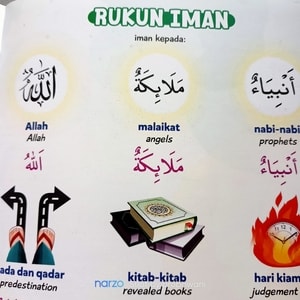 RUKUN IMAN
iman kepada:
اَللّٰهُ مَلَائِكَةٌ أَنْبِيَاءُ
Allah malaikat nabi-nabi
Allah angels prophets
اَللّٰهُ مَلَائِكَةٌ أَنْبِيَاءُ
ada dan qadar kitab-kitab hari kiam
predestination revealed books judgement
narzo